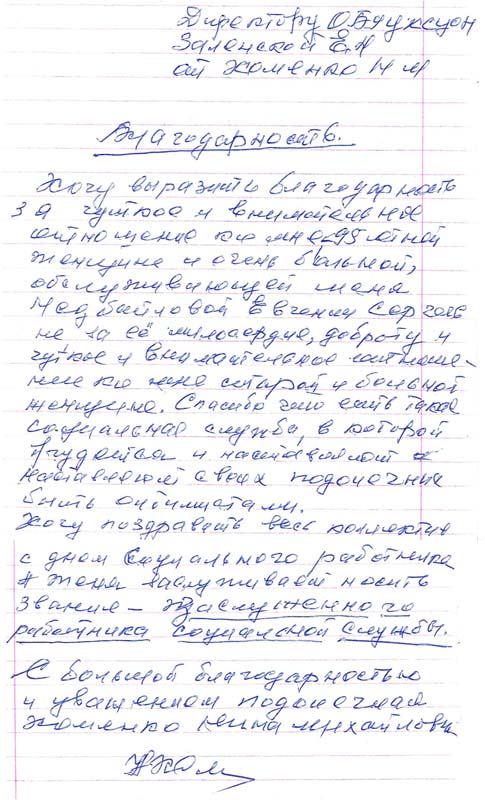 Директору ОБУ КЦСОН
Заленской Е.А
от Хоменко Н М
Благодарность.
Хочу выразить благодарность
за чуткое и внимательное
отношение ко мне 95 летной
женщине и очень больной,
обслуживающей меня
Недбайловой Евгении Сергеев
не за её милосердие, доброту и
чуткое и внимательное отноше-
ние ко мне старой и больной
женщине. Спасибо что есть такая
социальная служба, в которой
трудятся и наставляют
наставляют своих подопечных
быть оптимистами.
Хочу поздравить весь коллектив
с днем социального работника
Женя заслуживает носить
звание - заслуженного
работника социальной службы.
С большой благодарностью
и уважением подопечная
Хоменко Нина Михайловна
НХом